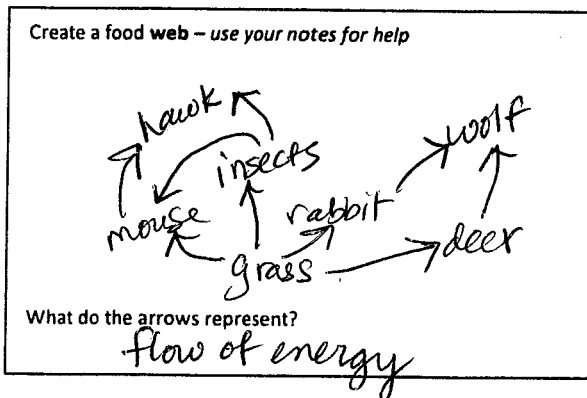 Create a food web – use your notes for help
hawk
woolf
insects
mouse
rabbit
deer
grass
What do the arrows represent?
flow of energy